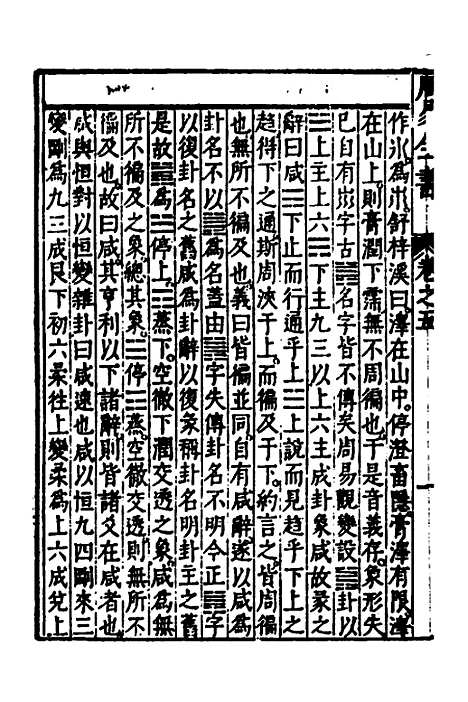 周易全書 卷之五 一
作𡿧爲𡿧舒梓溪曰澤在山中停澄畜隱膏澤有限澤
在山上則膏潤下霈無不周徧也于是音義存象形失
已自有𡿧字古䷞名字皆不傳矣周易觀變設䷞卦以
☱上主上六☶下主九三以上六主成卦象咸故彖之
辭曰咸☶下止而行通乎上☱上說而見趋乎下上之
趋得下之通斯周浹于上而徧及于下約言之皆周徧
也無所不徧及也義曰皆徧並同自有咸辭遂以咸爲
卦名不以䷞爲名蓋由䷞字失傳卦名不明今正䷞字
以復卦名之舊咸爲卦辭以復彖稱卦名明卦主之舊
是故䷞☱停上☶蒸下空徹下潤交透之象咸爲無
所不徧及之象總其象☱停☶蒸空徹交透則無所不
徧及也故曰咸其亨利以下諸辭則皆諸爻在咸者也
咸與恒對以恒變雜卦曰咸速也咸以恒九四剛來三
變剛爲九三成艮下初六柔往上變柔爲上六成兌上